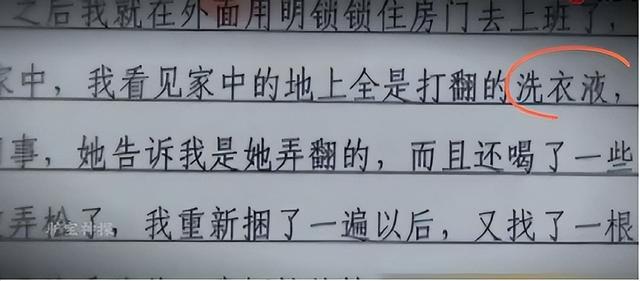 之后我就在外面用明锁锁住房门去上班了，
家中，我看见家中的地上全是打翻的洗衣液，
事，她告诉我是她弄翻的，而且还喝了一些
弄松了，我重新捆了一遍以后，又找了一根